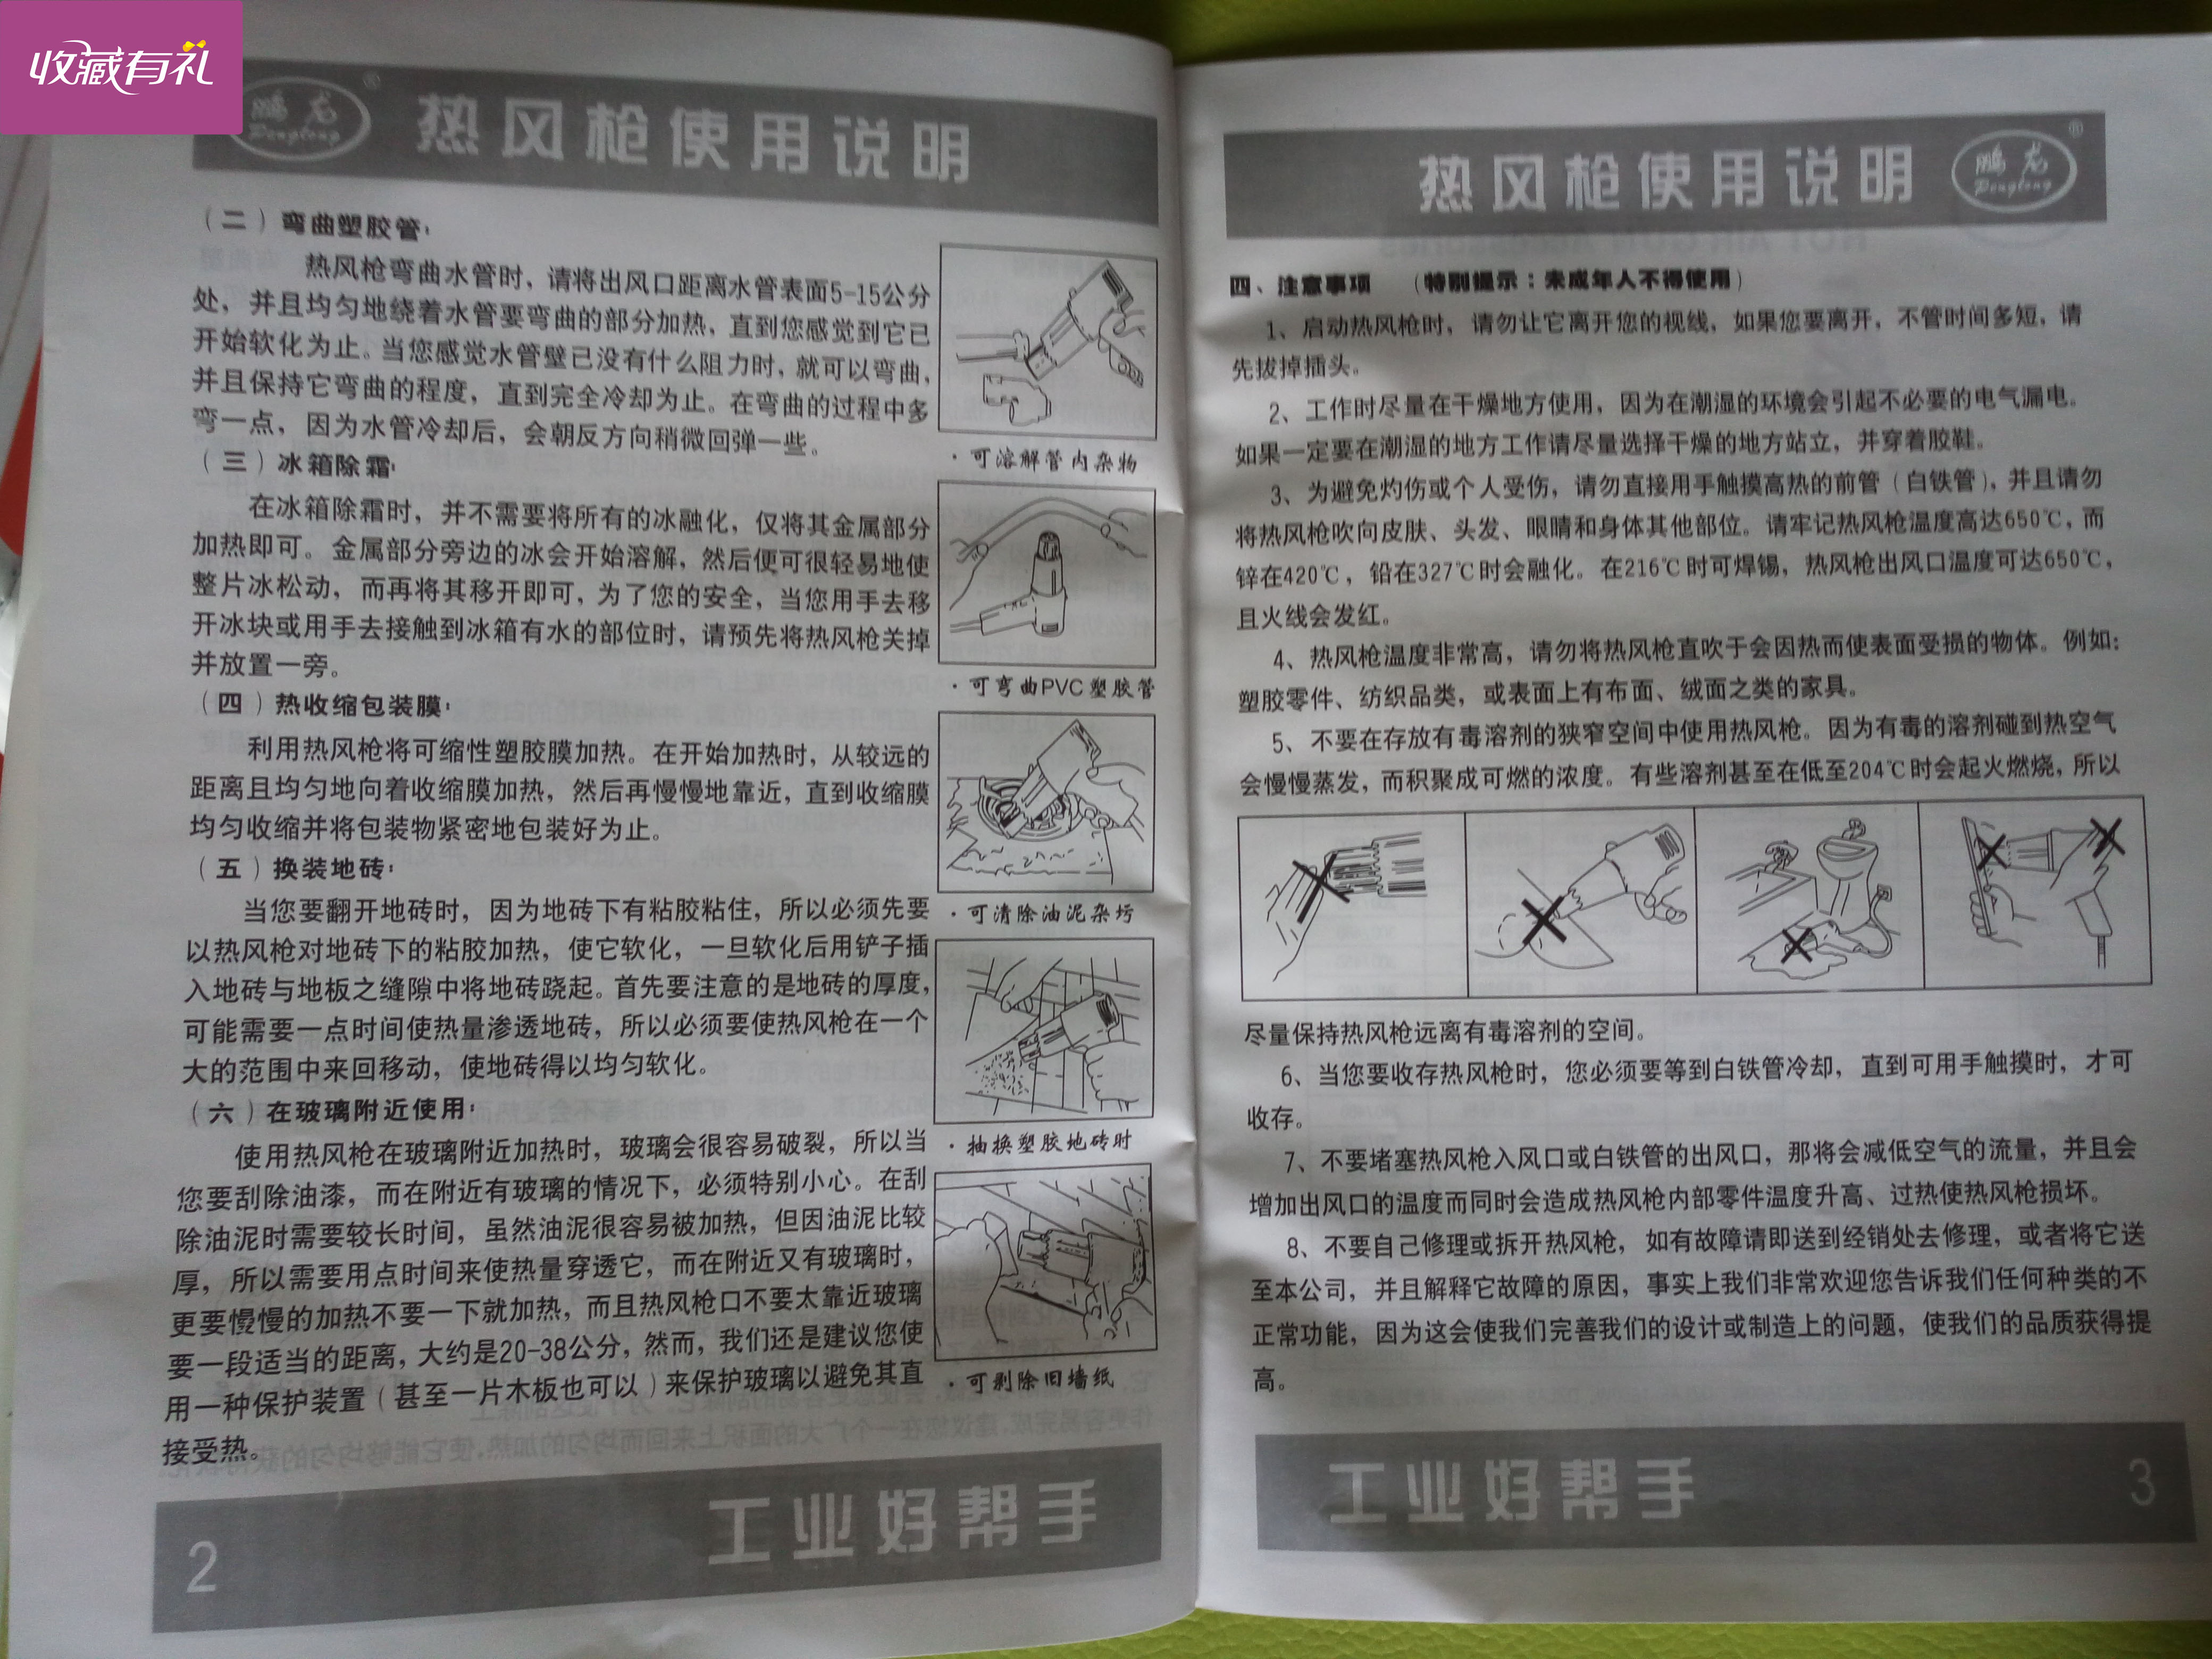 收藏有礼
鹏龙
Penglong
®
热风枪使用说明
（二）弯曲塑胶管：
热风枪弯曲水管时，请将出风口距离水管表面5-15公分
处，并且均匀地绕着水管要弯曲的部分加热，直到您感觉到它已
开始软化为止。当您感觉水管壁已没有什么阻力时，就可以弯曲，
并且保持它弯曲的程度，直到完全冷却为止。在弯曲的过程中多
弯一点，因为水管冷却后，会朝反方向稍微回弹一些。
（三）冰箱除霜：
在冰箱除霜时，并不需要将所有的冰融化，仅将其金属部分
加热即可。金属部分旁边的冰会开始溶解，然后便可很轻易地使
整片冰松动，而再将其移开即可，为了您的安全，当您用手去移
开冰块或用手去接触到冰箱有水的部位时，请预先将热风枪关掉
并放置一旁。
（四）热收缩包装膜：
利用热风枪将可缩性塑胶膜加热。在开始加热时，从较远的
距离且均匀地向着收缩膜加热，然后再慢慢地靠近，直到收缩膜
均匀收缩并将包装物紧密地包装好为止。
（五）换装地砖：
当您要翻开地砖时，因为地砖下有粘胶粘住，所以必须先要
以热风枪对地砖下的粘胶加热，使它软化，一旦软化后用铲子插
入地砖与地板之缝隙中将地砖跷起。首先要注意的是地砖的厚度，
可能需要一点时间使热量渗透地砖，所以必须要使热风枪在一个
大的范围中来回移动，使地砖得以均匀软化。
（六）在玻璃附近使用：
使用热风枪在玻璃附近加热时，玻璃会很容易破裂，所以当
您要刮除油漆，而在附近有玻璃的情况下，必须特别小心。在刮
除油泥时需要较长时间，虽然油泥很容易被加热，但因油泥比较
厚，所以需要用点时间来使热量穿透它，而在附近又有玻璃时，
更要慢慢的加热不要一下就加热，而且热风枪口不要太靠近玻璃
要一段适当的距离，大约是20-38公分，然而，我们还是建议您使
用一种保护装置（甚至一片木板也可以）来保护玻璃以避免其直
接受热。
·可溶解管内杂物
·可弯曲PVC塑胶管
·可清除油泥杂圬
·抽换塑胶地砖时
·可剥除旧墙纸
工业好帮手
2
热风枪使用说明
鹏龙
Penglong
®
四、注意事项 （特别提示：未成年人不得使用）
1、启动热风枪时，请勿让它离开您的视线，如果您要离开，不管时间多短，请
先拔掉插头。
2、工作时尽量在干燥地方使用，因为在潮湿的环境会引起不必要的电气漏电。
如果一定要在潮湿的地方工作请尽量选择干燥的地方站立，并穿着胶鞋。
3、为避免灼伤或个人受伤，请勿直接用手触摸高热的前管（白铁管），并且请勿
将热风枪吹向皮肤、头发、眼睛和身体其他部位。请牢记热风枪温度高达650℃，而
锌在420℃，铅在327℃时会融化。在216℃时可焊锡，热风枪出风口温度可达650℃，
且火线会发红。
4、热风枪温度非常高，请勿将热风枪直吹于会因热而使表面受损的物体。例如：
塑胶零件、纺织品类，或表面上有布面、绒面之类的家具。
5、不要在存放有毒溶剂的狭窄空间中使用热风枪。因为有毒的溶剂碰到热空气
会慢慢蒸发，而积聚成可燃的浓度。有些溶剂甚至在低至204℃时会起火燃烧，所以
尽量保持热风枪远离有毒溶剂的空间。
6、当您要收存热风枪时，您必须要等到白铁管冷却，直到可用手触摸时，才可
收存。
7、不要堵塞热风枪入风口或白铁管的出风口，那将会减低空气的流量，并且会
增加出风口的温度而同时会造成热风枪内部零件温度升高、过热使热风枪损坏。
8、不要自己修理或拆开热风枪，如有故障请即送到经销处去修理，或者将它送
至本公司，并且解释它故障的原因，事实上我们非常欢迎您告诉我们任何种类的不
正常功能，因为这会使我们完善我们的设计或制造上的问题，使我们的品质获得提
高。
工业好帮手
3